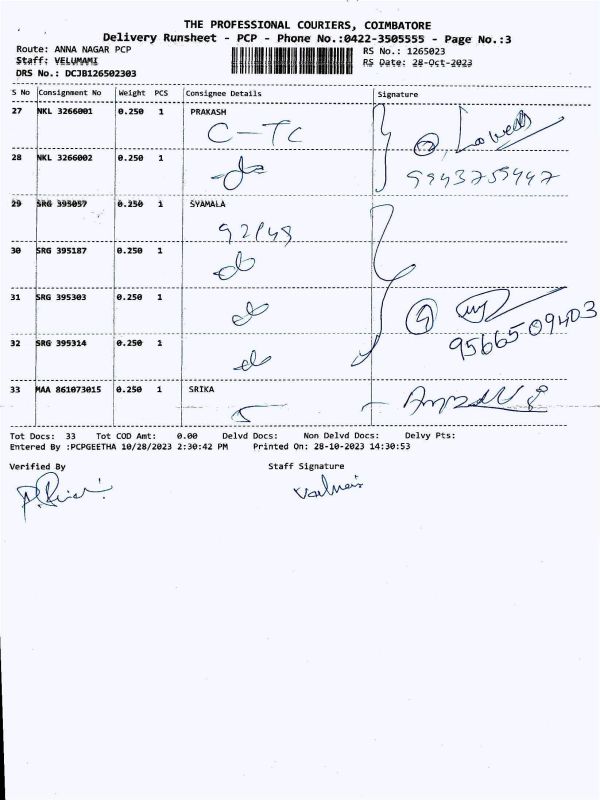 THE PROFESSIONAL COURIERS, COIMBATORE
Delivery Runsheet - PCP - Phone No.:0422-3505555 - Page No.:3
Route: ANNA NAGAR PCP RS No.: 1265023
Staff: VELUMAMI RS Date: 28-Oct-2023
DRS No.: DCJB126502303
S No Consignment No Weight PCS Consignee Details Signature
27 NKL 3266001 0.250 1 PRAKASH
C-TC
28 NKL 3266002 0.250 1
9943759447
29 SRG 395057 0.250 1 SYAMALA
30 SRG 395187 0.250 1
31 SRG 395303 0.250 1
9566509403
32 SRG 395314 0.250 1
33 MAA 861073015 0.250 1 SRIKA
Tot Docs: 33 Tot COD Amt: 0.00 Delvd Docs: Non Delvd Docs: Delvy Pts:
Entered By :PCPGEETHA 10/28/2023 2:30:42 PM Printed On: 28-10-2023 14:30:53
Verified By Staff Signature